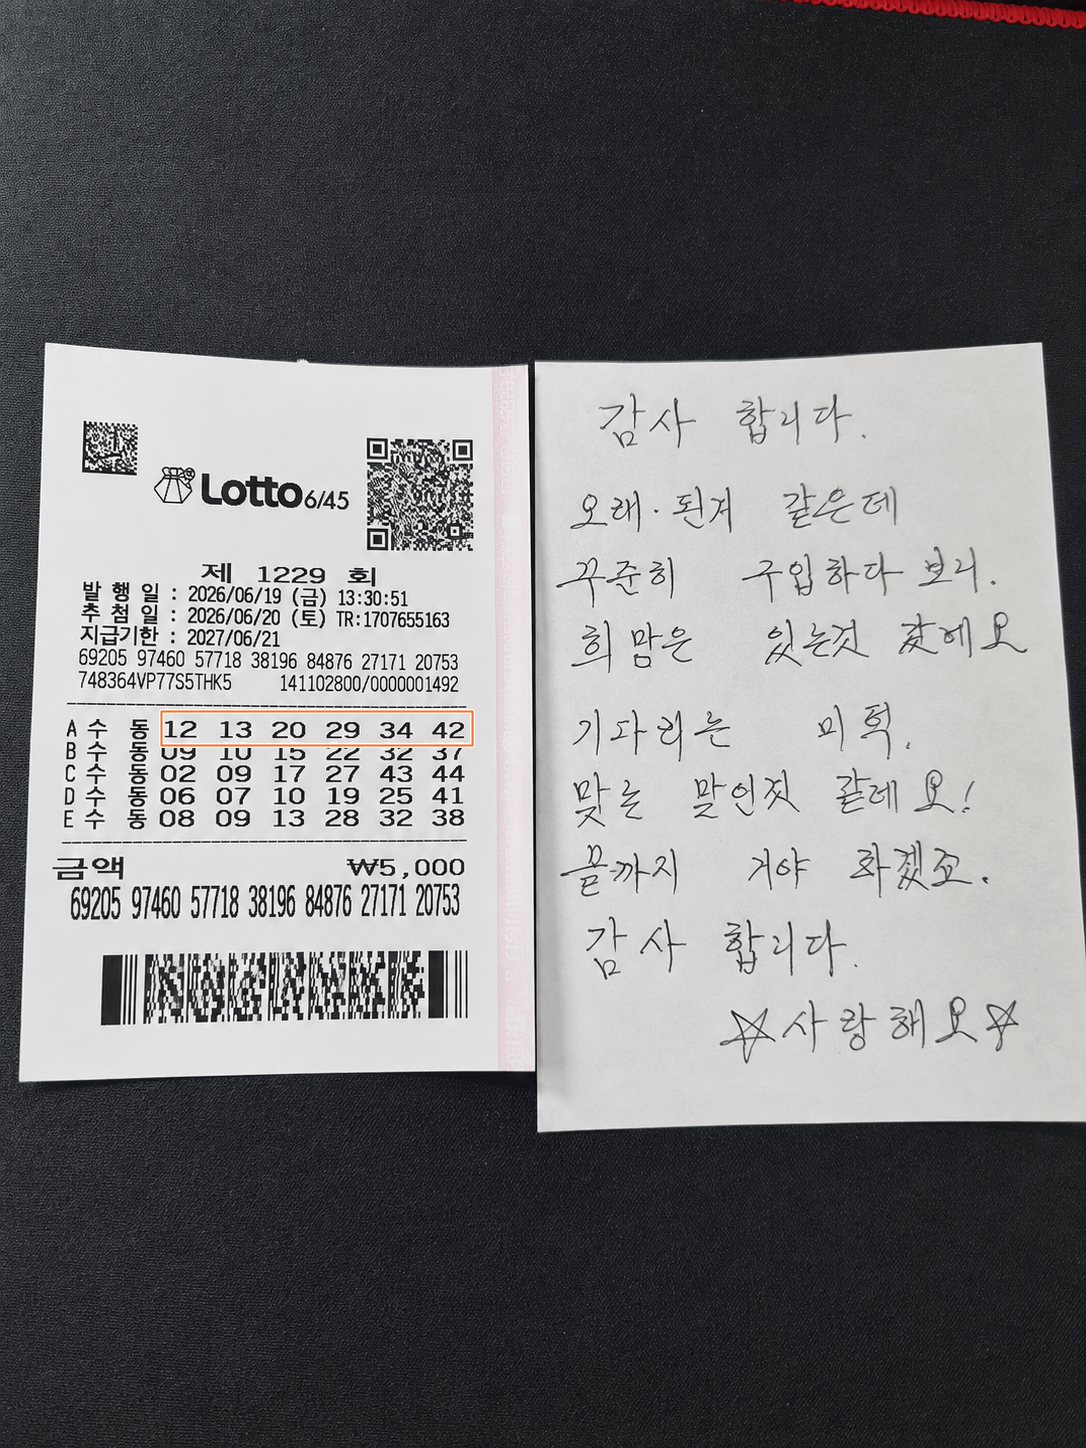 Lotto 6/45
제 1229 회
발 행 일 : 2026/06/19 (금) 13:30:51
추 첨 일 : 2026/06/20 (토) TR:1707655163
지급기한 : 2027/06/21
69205 97460 57718 38196 84876 27171 20753
748364VP77S5THK5 141102800/0000001492
A 수 동 12 13 20 29 34 42
B 수 동 09 10 15 22 32 37
C 수 동 02 09 17 27 43 44
D 수 동 06 07 10 19 25 41
E 수 동 08 09 13 28 32 38
금액 ₩5,000
69205 97460 57718 38196 84876 27171 20753
감사 합니다.
오래.된거 같은데
꾸준히 구입하다 보니.
희망은 있는것 같에요
기다리는 미덕.
맞는 말인것 같데요!
끝까지 가야 하겠죠.
감사 합니다.
☆사랑해요☆